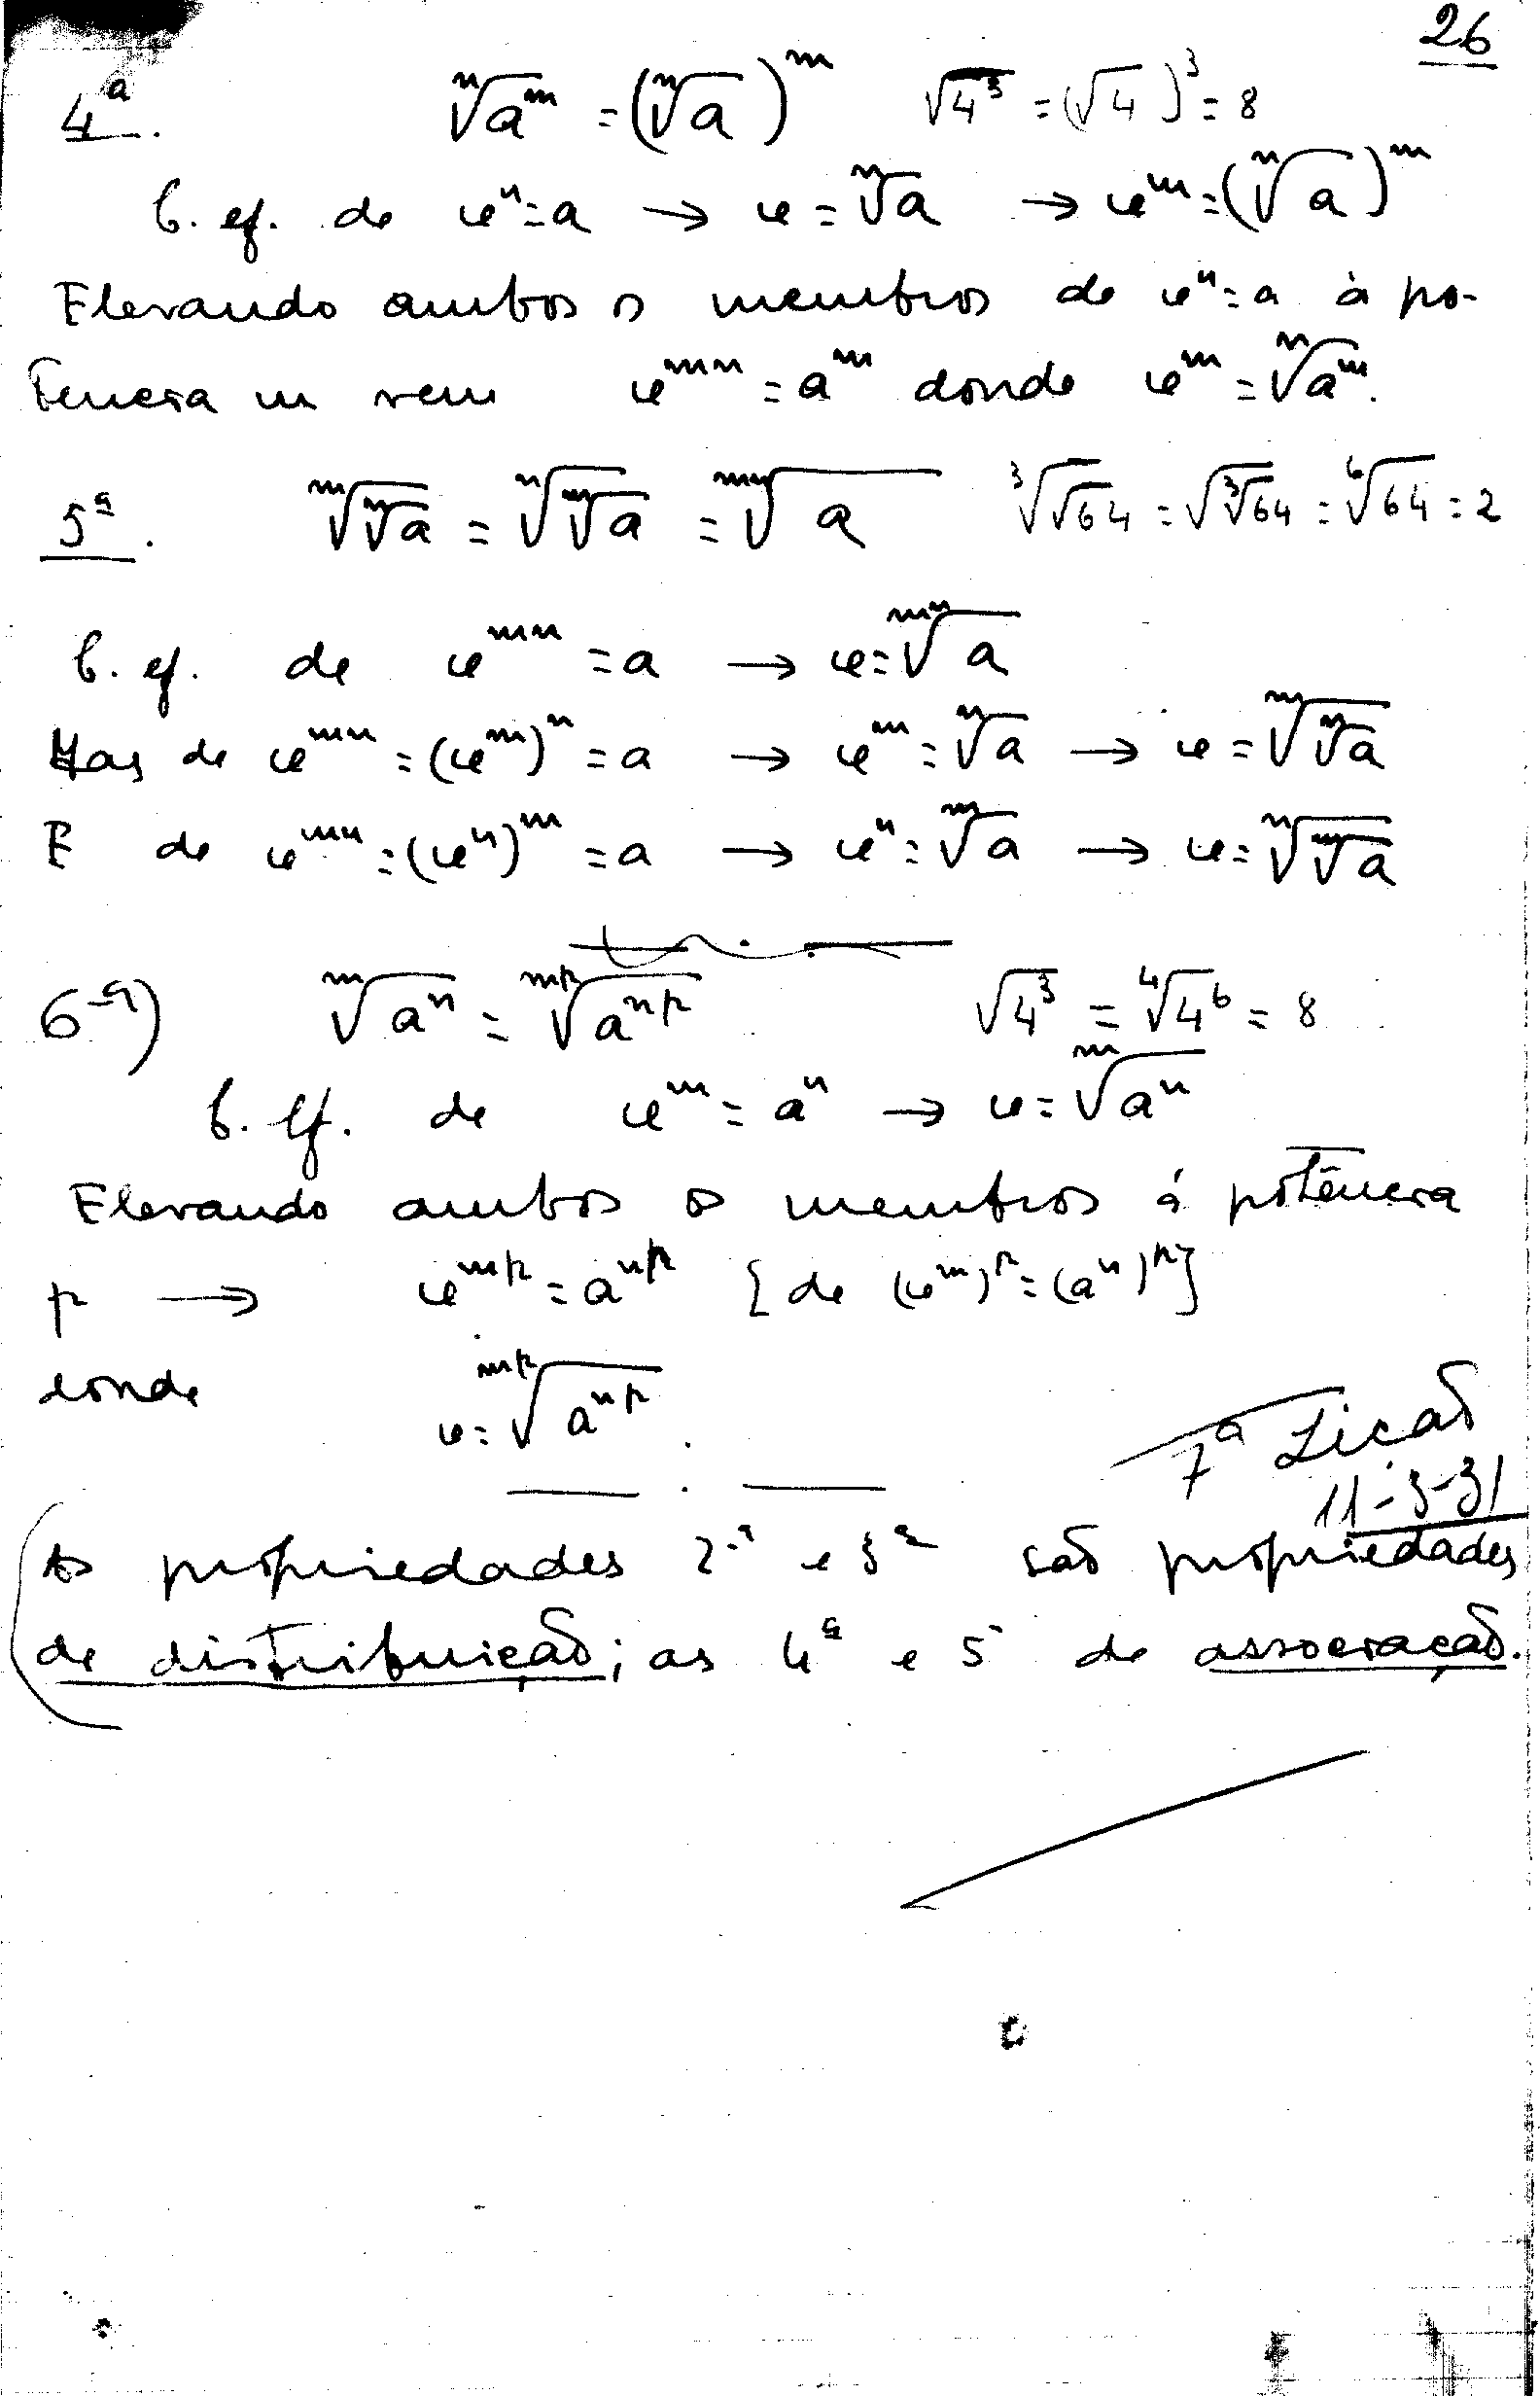 26
4ª. ⁿ√aᵐ = (ⁿ√a)ᵐ √4³ = (√4)³ = 8
C. ef. de xⁿ = a → x = ⁿ√a → xᵐ = (ⁿ√a)ᵐ
Elevando ambos os membros de xⁿ = a à po-
tencia m vem xᵐⁿ = aᵐ donde xᵐ = ⁿ√aᵐ.
5ª. ᵐ√ⁿ√a = ⁿ√ᵐ√a = ᵐⁿ√a ³√√64 = √³√64 = ⁶√64 = 2
C. ef. de xᵐⁿ = a → x = ᵐⁿ√a
Mas de xᵐⁿ = (xᵐ)ⁿ = a → xᵐ = ⁿ√a → x = ᵐ√ⁿ√a
E de xᵐⁿ = (xⁿ)ᵐ = a → xⁿ = ᵐ√a → x = ⁿ√ᵐ√a
6ª) ᵐ√aⁿ = ᵐᵖ√aⁿᵖ √4³ = ⁴√4⁶ = 8
C. ef. de xᵐ = aⁿ → x = ᵐ√aⁿ
Elevando ambos os membros á potência
p → xᵐᵖ = aⁿᵖ [de (xᵐ)ᵖ = (aⁿ)ᵖ]
donde x = ᵐᵖ√aⁿᵖ.
7ª Lição
11-3-31
As propriedades 2ª e 3ª são propriedades
de distribuição; as 4ª e 5ª de associação.